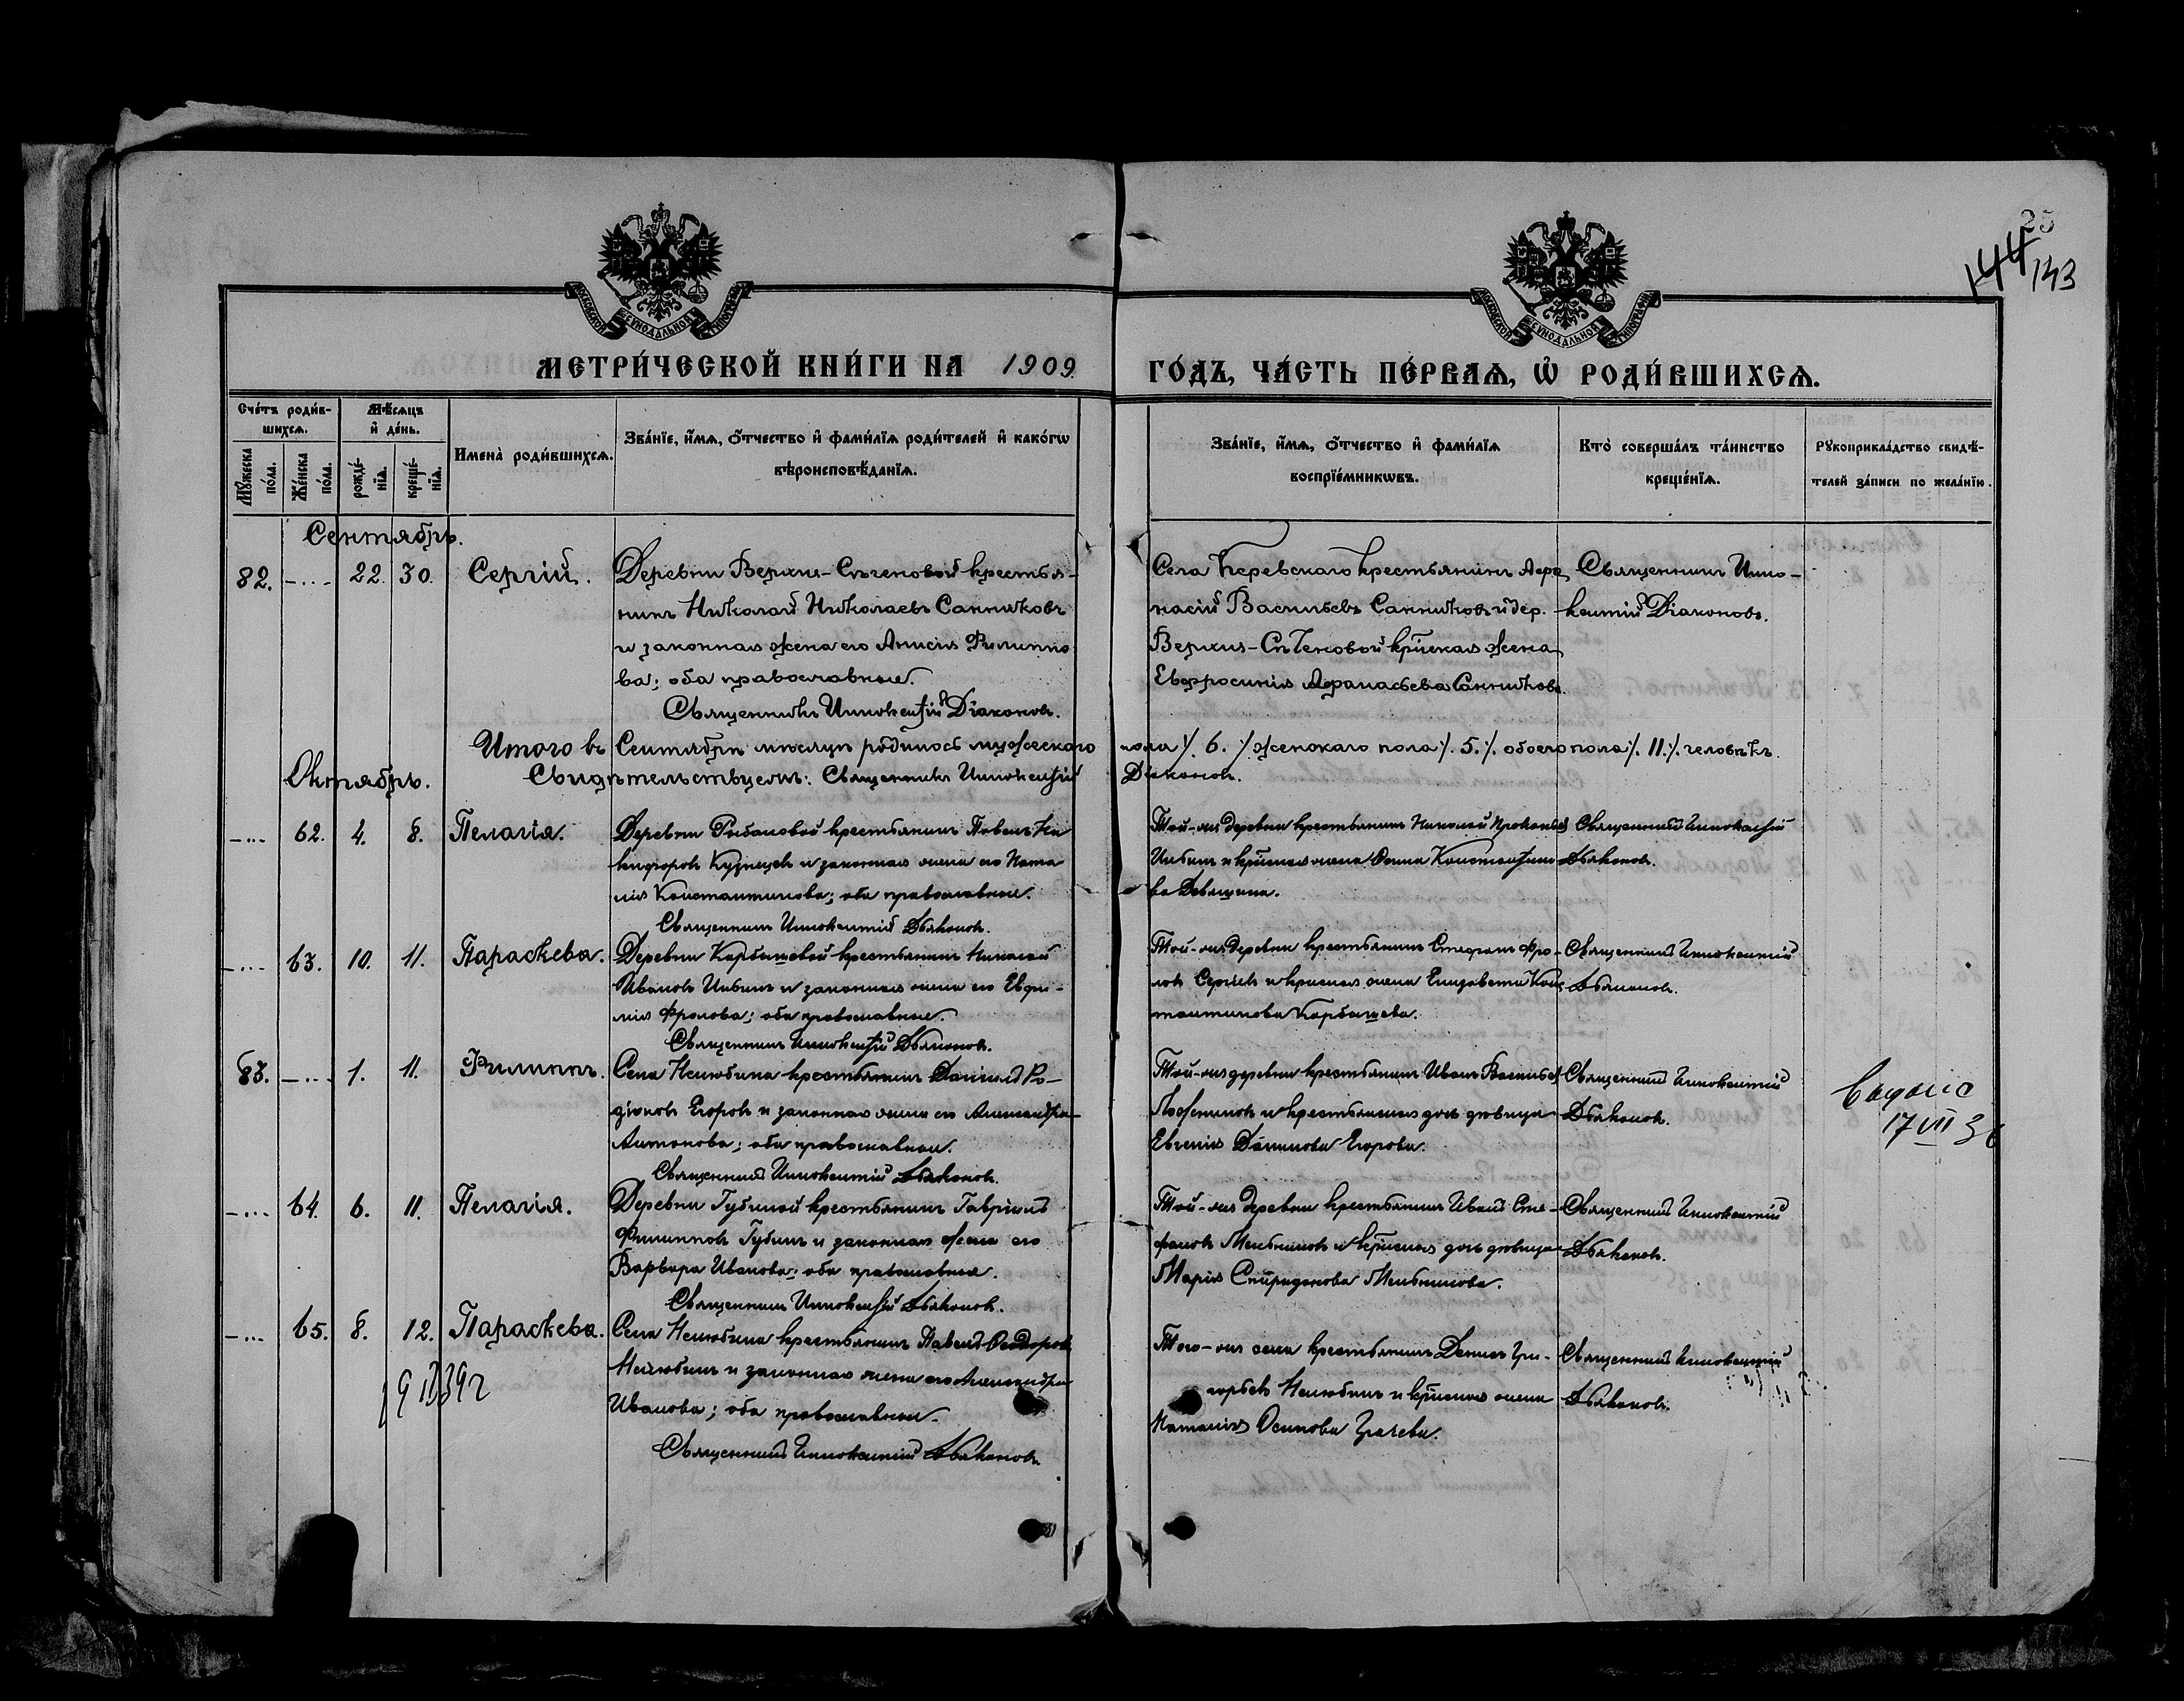 25
144 143
МОСКОВСКОЙ СѴНОДАЛЬНОЙ ТИПОГРАФІИ
МОСКОВСКОЙ СѴНОДАЛЬНОЙ ТИПОГРАФІИ
МЕТРИ́ЧЕСКОЙ КНИ́ГИ НА 1909 ГО́ДЪ, ЧА́СТЬ ПЕ́РВАЯ, Ѡ҆ РОДИ́ВШИХСЯ.
Сче́тъ роди́в-
шихся.
Мѣ́сяцъ
и҆ де́нь.
Мꙋ́жеска
по́ла.
Же́нска
по́ла.
рожде́-
нїя.
креще́-
нїя.
И҆мена̀ роди́вшихся.
Зва́нїе, и҆́мя, ѻ҆́тчество и҆ фами́лїя роди́телей и҆ како́гѡ
вѣроисповѣ́данїя.
Зва́нїе, и҆́мя, ѻ҆́тчество и҆ фами́лїя
воспрїе́мникѡвъ.
Кто̀ соверша́лъ та́инство
креще́нїя.
Рꙋкоприкла́дство свидѣ́-
телей за́писи по жела́нїю.
Сентябрь.
82. 22. 30. Сергій.
Деревни Верхне-Сѣченовой крестья-
нинъ Николай Николаевъ Санниковъ
и законная жена его Анисія Филиппо-
ва; оба православные.
Священникъ Иннокентій Діаконовъ.
Села Керевскаго крестьянинъ Афа-
насій Васильевъ Санниковъ и дер.
Верхне-Сѣченовой кр. жена
Евфросинія Афанасьева Санникова.
Священникъ Инно-
кентій Діаконовъ.
Итого въ Сентябрѣ мѣсяцѣ родилось мужескаго пола ⁒ 6. ⁒ женскаго пола ⁒ 5. ⁒ обоего пола ⁒ 11 ⁒ человѣкъ.
Свидѣтельствуемъ: Священникъ Иннокентій Діаконовъ.
Октябрь.
62. 4. 8. Пелагія.
Деревни Рыбаловой крестьянинъ Павелъ Ни-
кифоровъ Кузнецовъ и законная жена его Ната-
лія Константинова; оба православные.
Священникъ Иннокентій Дьяконовъ.
Той-же деревни крестьянинъ Николай
Ивбинъ и жена Константино-
ва
Священникъ Иннокентій
Дьяконовъ.
63. 10. 11. Параскева.
Деревни Карбышевой крестьянинъ Николай
Ивановъ Ивбинъ и законная жена его Евфи-
мія Фролова; оба православные.
Священникъ Иннокентій Дьяконовъ.
Той-же деревни крестьянинъ Стефанъ Фро-
ловъ Сергѣевъ и крестьянская жена Елизавета Конс-
тантинова Карбышева.
Священникъ Иннокентій
Дьяконовъ.
83. 1. 11. Филиппъ.
Села Нелюбина крестьянинъ Даніилъ Ро-
діоновъ Егоровъ и законная жена его Александра
Антонова; оба православные.
Священникъ Иннокентій Дьяконовъ.
Той-же деревни крестьянинъ Иванъ Васильевъ
и крестьянская дочь дѣвица
Евгенія Данилова Егорова.
Священникъ Иннокентій
Дьяконовъ.
17 VII 36
64. 6. 11. Пелагія.
Деревни Губиной крестьянинъ Гавріилъ
Филипповъ Губинъ и законная жена его
Варвара Иванова; оба православные.
Священникъ Иннокентій Дьяконовъ.
Той-же деревни крестьянинъ Иванъ Сте-
фановъ Мельниковъ и дочь дѣвица
Марія Спиридонова Мельникова.
Священникъ Иннокентій
Дьяконовъ.
65. 8. 12. Параскева.
Села Нелюбина крестьянинъ Павелъ Феодоровъ
Нелюбинъ и законная жена его Александра
Иванова; оба православные.
Священникъ Иннокентій Дьяконовъ.
Того-же села крестьянинъ Денисъ Гри-
горьевъ Нелюбинъ и жена
Наталія Осипова Грачева.
Священникъ Иннокентій
Дьяконовъ.